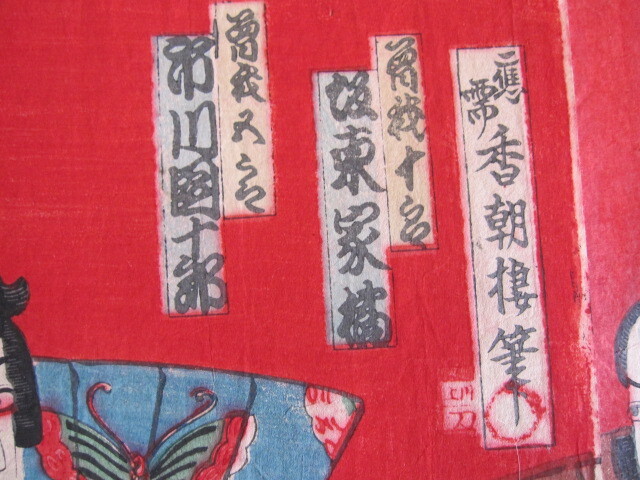 應需 香朝楼筆
曽我十郎
坂東家橘
曽我五郎
市川團十郎